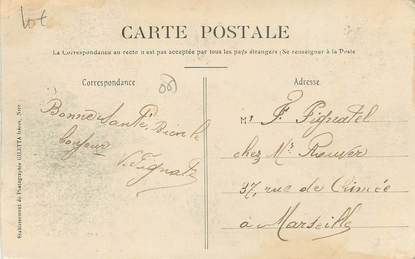 Lot
CARTE POSTALE
La Correspondance au recto n'est pas acceptée par tous les pays étrangers (Se renseigner à la Poste
Correspondance
Adresse
06
Bonne Santé. Bien le
bonjour
V. Pignatel
Mr F. Pignatel
chez Mr
37, rue de Crimée
à Marseille
Etablissement de Photographie GILETTA frères, Nice